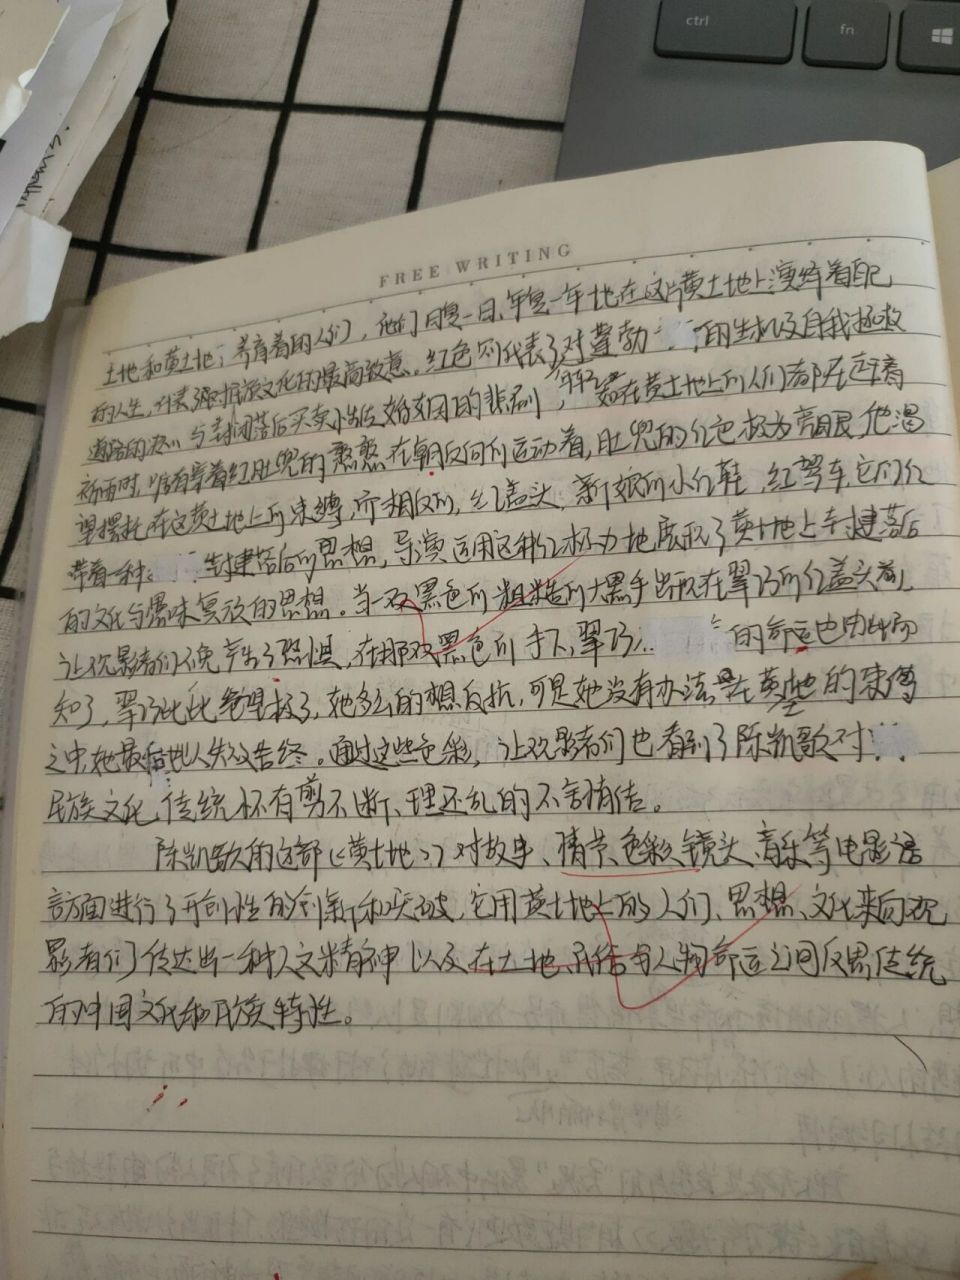 ctrl
fn
FREE WRITING
土地和黄土地养育着的人们，他们日复一日、年复一年地在这片黄土地上演绎着自己
的人生，代表了对民族文化的最高敬意。红色则代表了对蓬勃的生机及自我拯救
道路的 与封闭落后买卖性质婚姻的悲剧，在黄土地上的人们都在
祈雨时，唯有穿着红肚兜的憨憨在朝反向的运动着，肚兜的红色极为亮眼，他渴
望摆脱在这黄土地上的束缚，而相反的，红盖头，新娘的小红鞋，红驾车，它们仅
带着一种封建落后的思想，导演运用这种红极力地展现了黄土地上封建落后
的文化与愚昧 的思想。当一双黑色的粗糙的大黑手出现在翠巧的红盖头前，
让观影者们不免产生了恐惧，在那双黑色的手下，翠巧的命运也由此可
知了，翠巧此时绝望极了，她多么的想反抗，可是她没有办法，在黄土地的束缚
之中她最后地以失败告终。通过这些色彩，让观影者们也看到了陈凯歌对
民族文化、传统怀有剪不断、理还乱的不舍情结。
陈凯歌的这部《黄土地》对故事、情节、色彩、镜头、音乐等电影语
言方面进行了开创性的创新和突破，它用黄土地上的人们、思想、文化来向观
影者们传达出一种人文精神以及在土地、风俗与人物命运之间反思传统
的中国文化和民族特性。